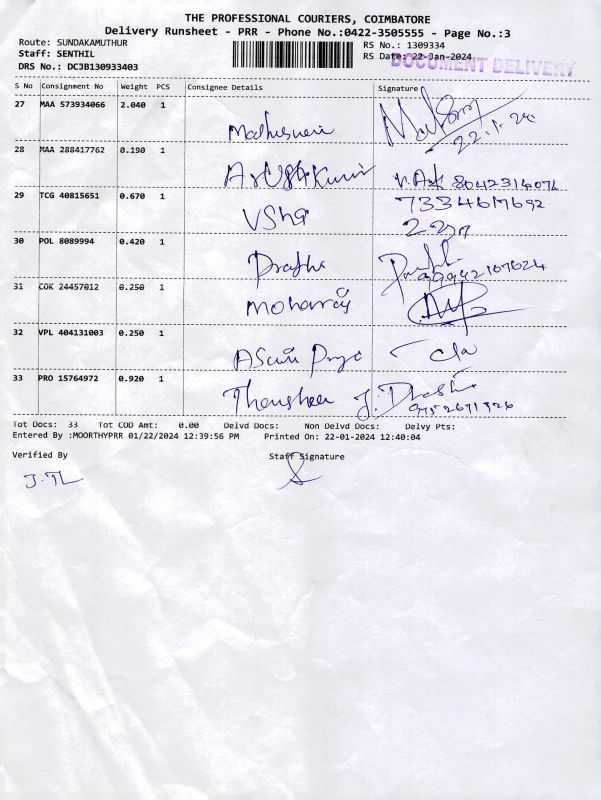 THE PROFESSIONAL COURIERS, COIMBATORE
Delivery Runsheet - PRR - Phone No.:0422-3505555 - Page No.:3
Route: SUNDAKAMUTHUR
RS No.: 1309334
Staff: SENTHIL
RS Date: 22-Jan-2024
DRS No.: DCJB130933403
DOCUMENT DELIVERY
S No Consignment No Weight PCS Consignee Details Signature
27 MAA 573934066 2.040 1
22.1.24
28 MAA 288417762 0.190 1
29 TCG 40815651 0.670 1 Usha
30 POL 8089994 0.420 1
31 COK 24457012 0.250 1 Mohanraj
32 VPL 404131003 0.250 1
33 PRO 15764972 0.920 1
Tot Docs: 33 Tot COD Amt: 0.00 Delvd Docs: Non Delvd Docs: Delvy Pts:
Entered By :MOORTHYPRR 01/22/2024 12:39:56 PM Printed On: 22-01-2024 12:40:04
Verified By Staff Signature